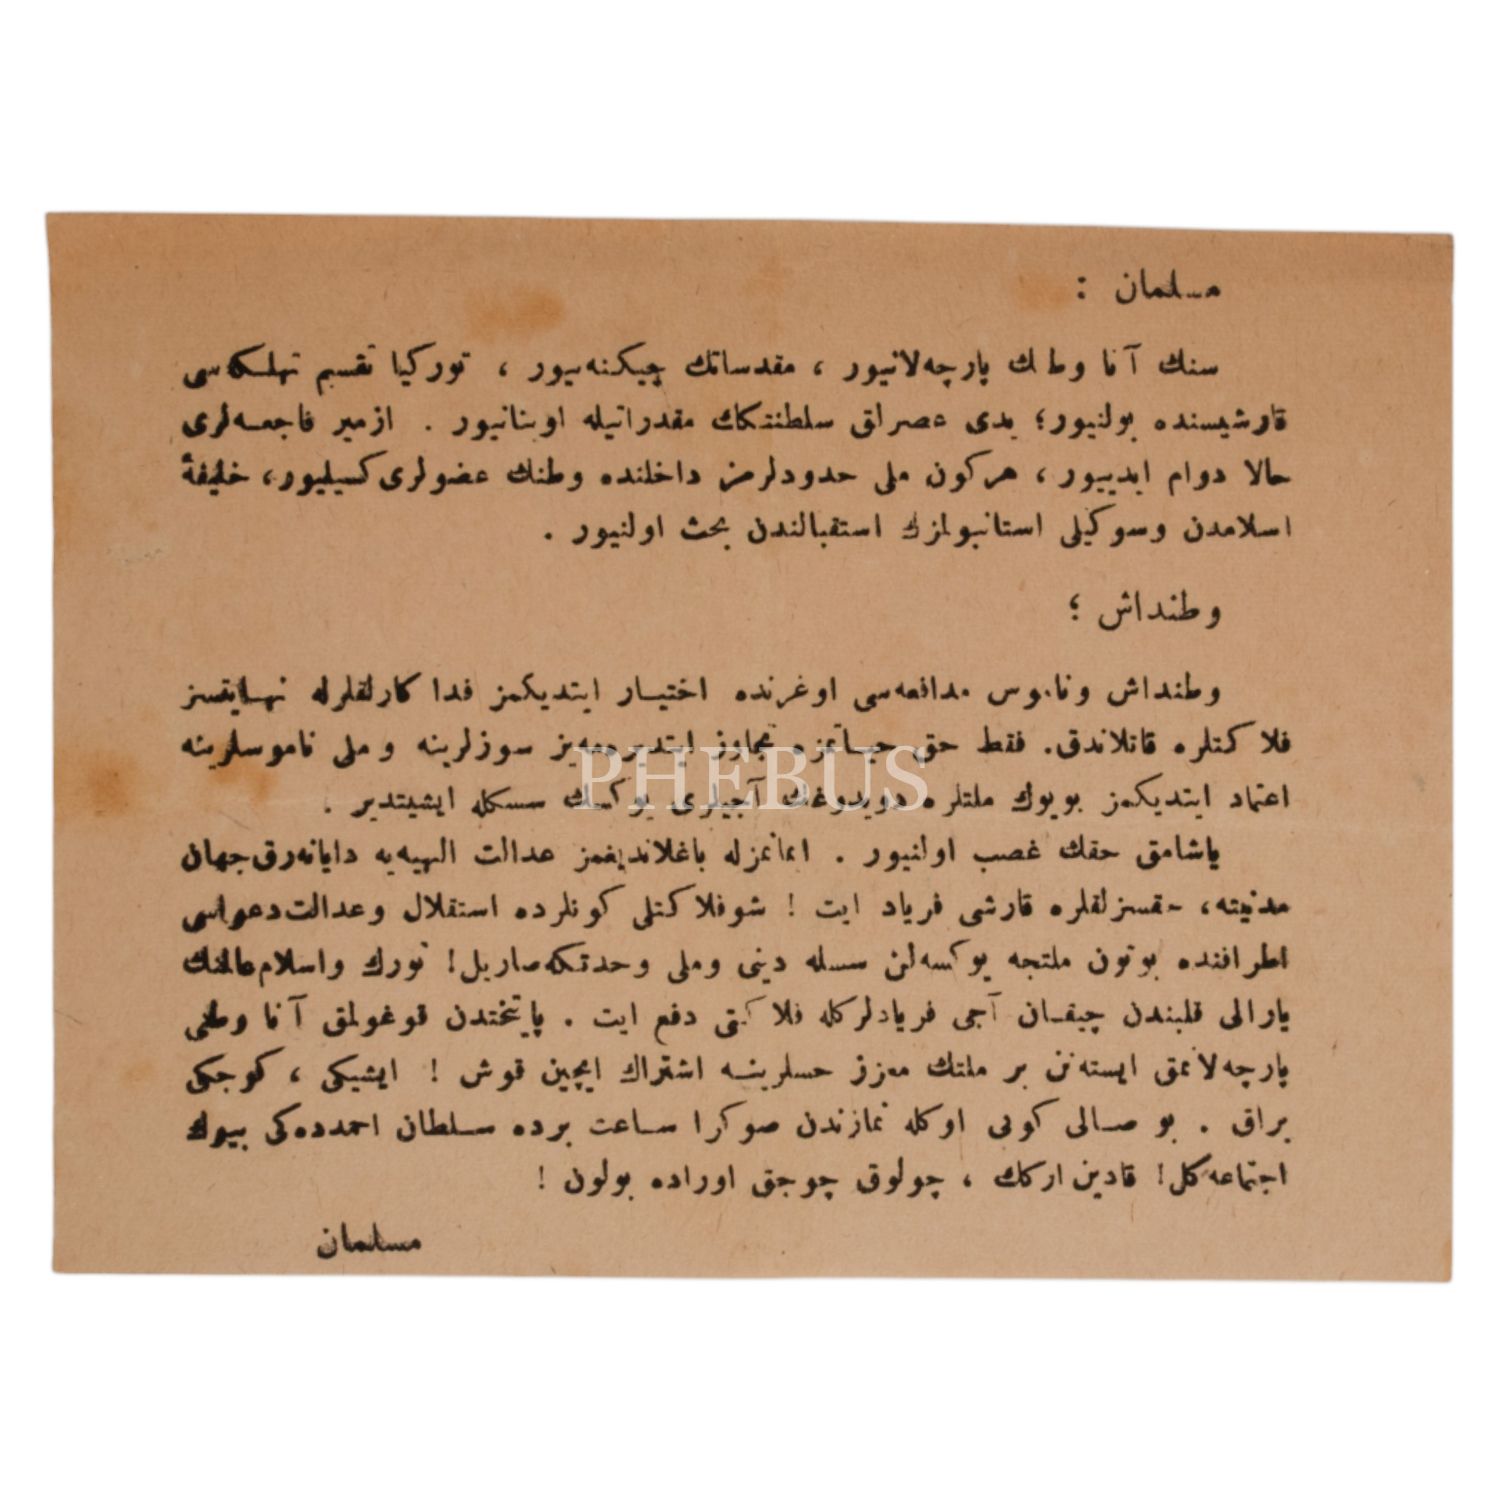 مسلمان :
سنك آنا وطنك پارچه‌لانیور ، مقدساتك چیكنه‌نیور ، توركیا تقسیم تهلكه‌سی
قارشیسنده بولنیور؛ یدی عصرلق سلطنتكك مقدراتیله اوینانیور . ازمیر فاجعه‌لری
حالا دوام ایدییور ، هركون ملی حدودلرمز داخلنده وطنك عضولری كسیلیور، خلیفهٔ
اسلامدن وسوكیلی استانبولمزك استقبالندن بحث اولنیور .
وطنداش ؛
وطنداش وناموس مدافعه‌سی اوغرنده اختیار ایتدیكمز فدا كارلقلرله نهایتسز
فلاكتلره قاتلاندق. فقط حق حیاتمزه تجاوز ایتدیرمه‌یز سوزلرینه وملی ناموسلرینه
اعتماد ایتدیكمز بویوك ملتلره دویدوغك آجیلری یوكسك سسكله ایشیتدیر .
یاشامق حقك غصب اولنیور . ایمانمزله باغلاندیغمز عدالت الهیه‌یه دایانه‌رق جهان
مدنیته، حقسزلقلره قارشی فریاد ایت ! شوفلاكتلی كونلرده استقلال وعدالت دعواسی
اطرافنده بوتون ملتجه یوكسه‌لن سسله دینی وملی وحدتكه صاریل! تورك واسلام عالمنك
یارالی قلبندن چیقان آجی فریادلركله فلاكتی دفع ایت . پایتختدن قوغولمق آنا وطنی
پارچه‌لانمق ایسته‌نن بر ملتك معزز حسلرینه اشتراك ایچین قوش ! ایشیكی ، كوجكی
براق . بو صالی كونی اوكله نمازندن صوكرا ساعت برده سلطان احمدده‌كی بیوك
اجتماعه كل! قادین اركك ، چولوق چوجق اوراده بولون !
مسلمان
PHEBUS